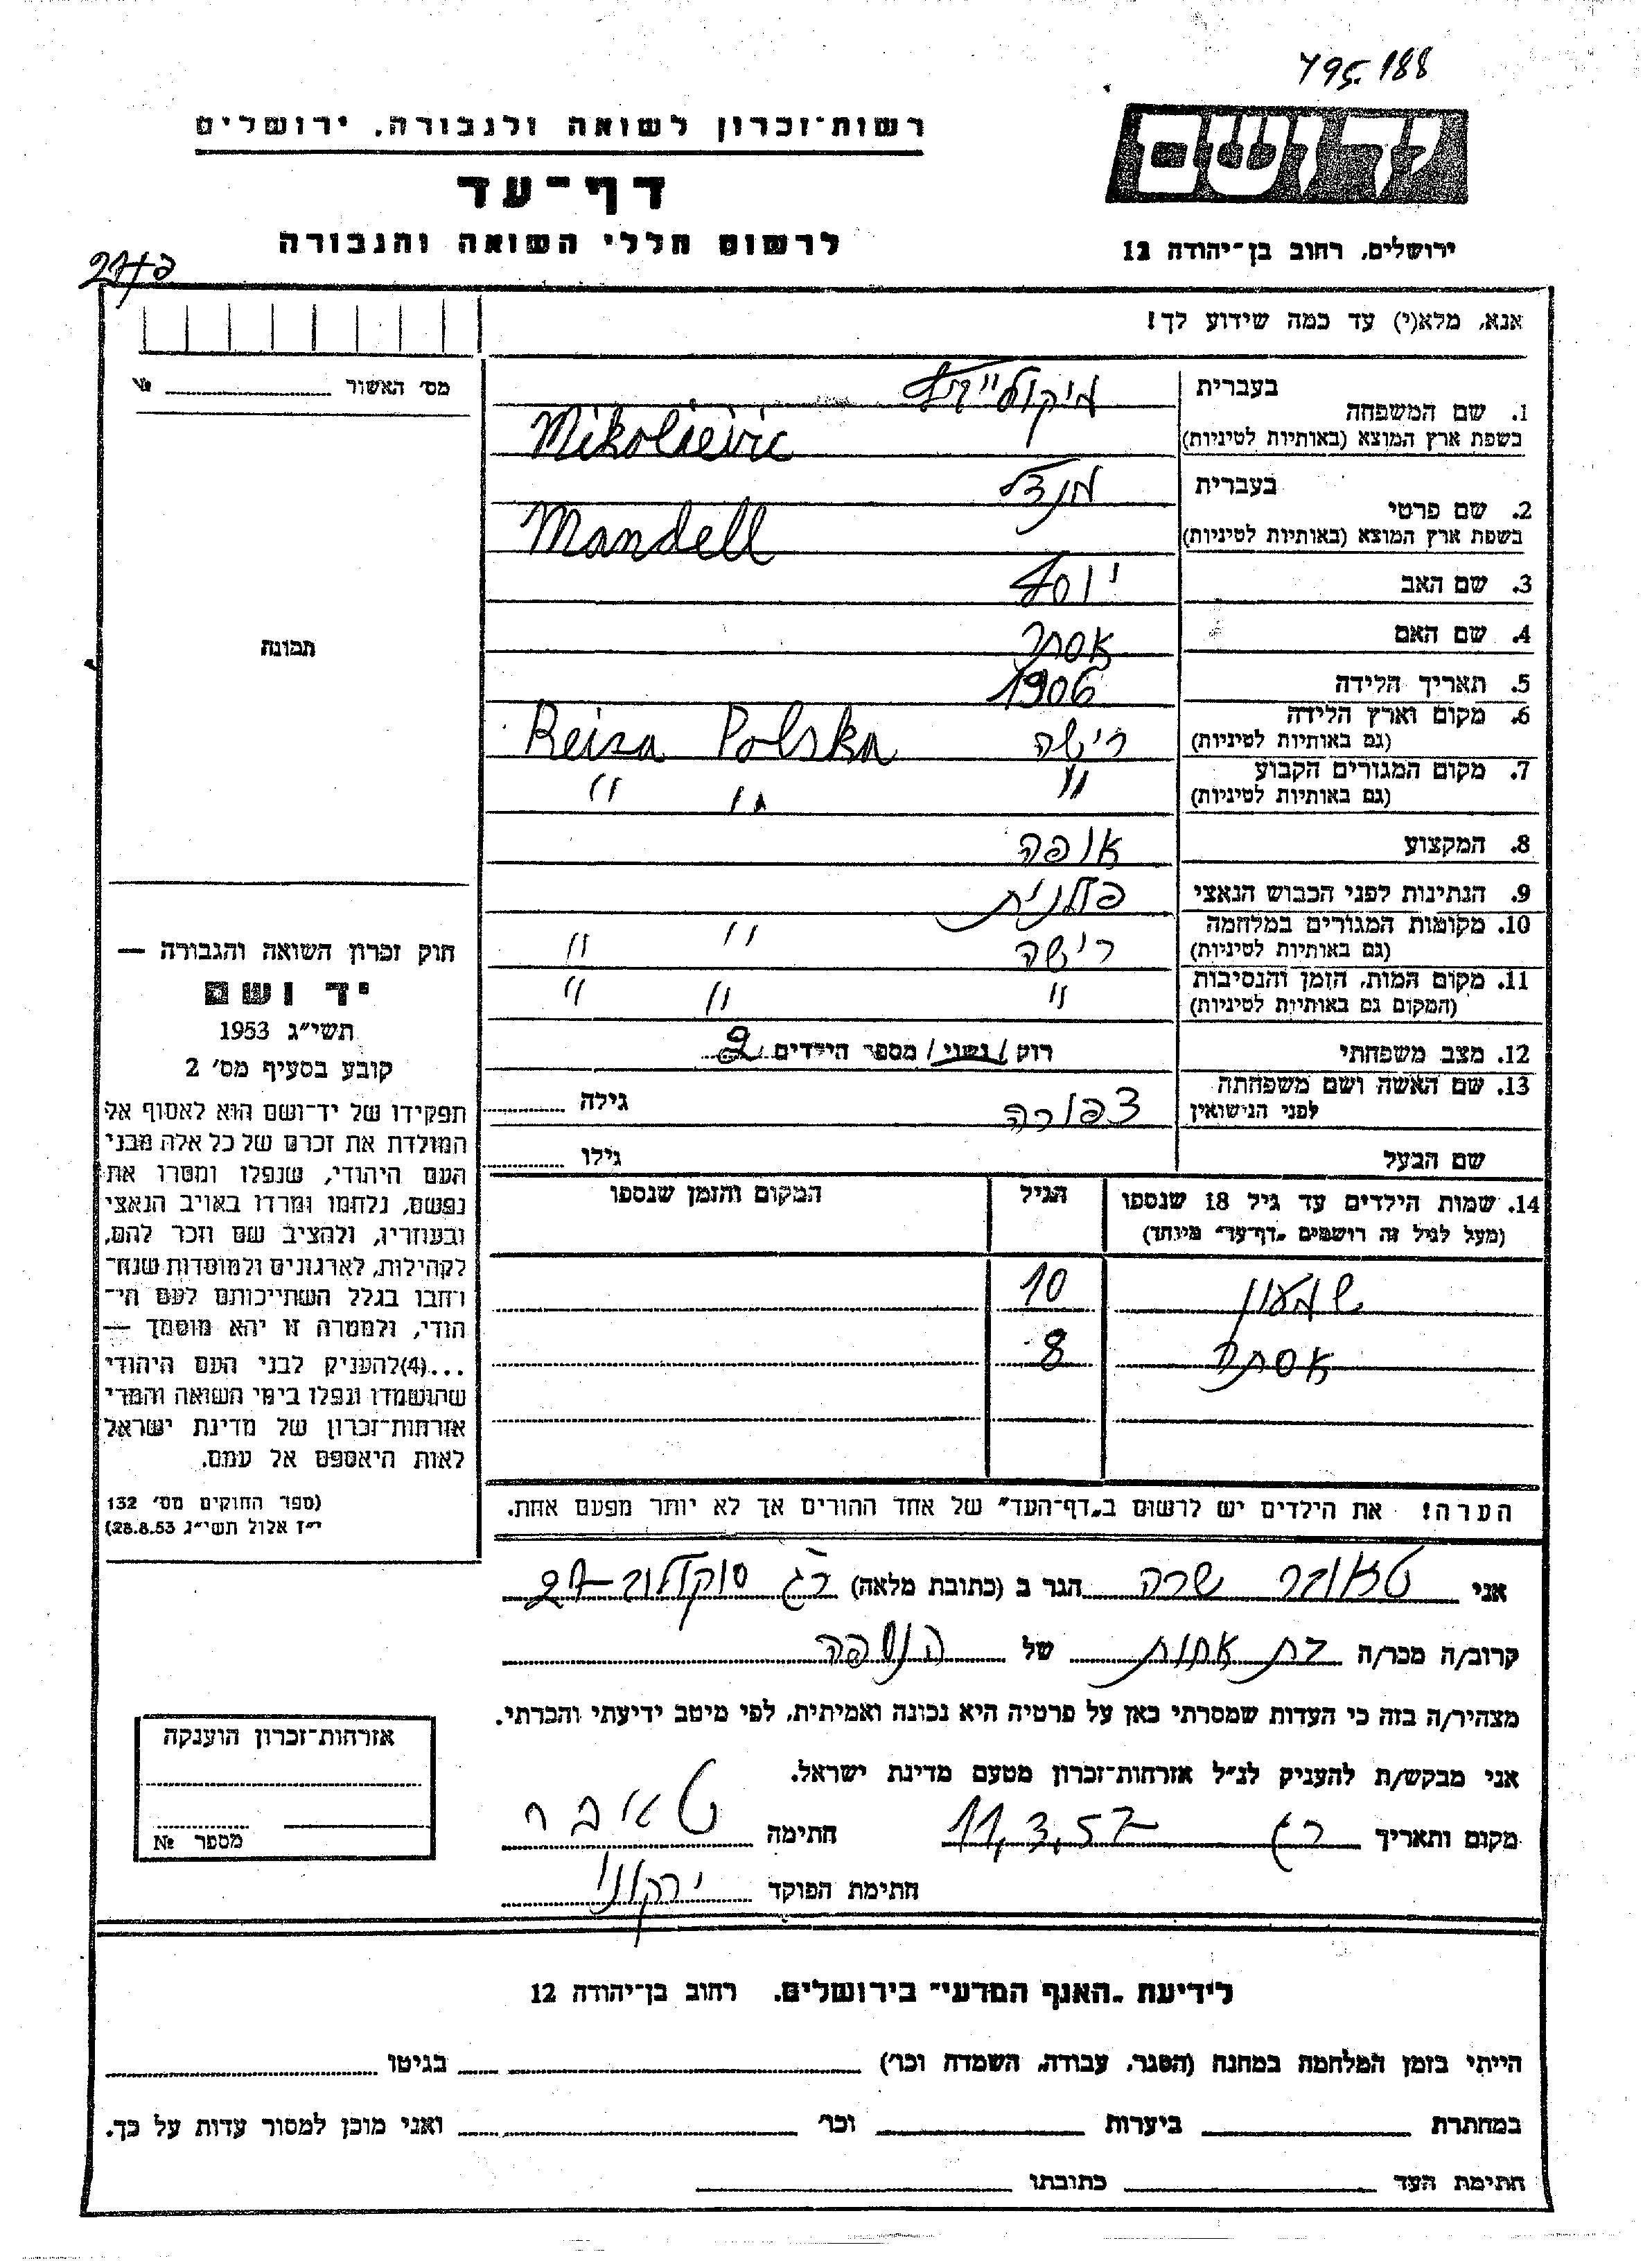 795.188
יד ושם
רשות־זכרון לשואה ולגבורה, ירושלים
דף־עד
לרשום חללי השואה והגבורה
ירושלים, רחוב בן־יהודה 12
אנא, מלא(י) עד כמה שידוע לך!
מס׳ האשור № 
בעברית
1. שם המשפחה
בשפת ארץ המוצא (באותיות לטיניות) Mikolieivic
בעברית מנדל
2. שם פרטי
בשפת ארץ המוצא (באותיות לטיניות) Mandell
3. שם האב יוסף
4. שם האם אסתר
5. תאריך הלידה 1906
6. מקום וארץ הלידה
(גם באותיות לטיניות) רישה Reisa Polska
7. מקום המגורים הקבוע
(גם באותיות לטיניות) " " "
8. המקצוע אופה
9. הנתינות לפני הכבוש הנאצי פולנית
10. מקומות המגורים במלחמה
(גם באותיות לטיניות) רישה " "
11. מקום המות, הזמן והנסיבות
(המקום גם באותיות לטיניות) " " "
12. מצב משפחתי רוק / נשוי / מספר הילדים 2
13. שם האשה ושם משפחתה
לפני הנישואין צפורה גילה
שם הבעל גילו
14. שמות הילדים עד גיל 18 שנספו הגיל המקום והזמן שנספו
(מעל לגיל זה רושמים „דף־עד" מיוחד)
שמעון 10
אסתר 8
הערה! את הילדים יש לרשום ב„דף־העד" של אחד ההורים אך לא יותר מפעם אחת.
תמונה
חוק זכרון השואה והגבורה —
יד ושם
תשי״ג 1953
קובע בסעיף מס׳ 2
תפקידו של יד־ושם הוא לאסוף אל
המולדת את זכרם של כל אלה מבני
העם היהודי, שנפלו ומסרו את
נפשם, נלחמו ומרדו באויב הנאצי
ובעוזריו, ולהציב שם וזכר להם,
לקהילות, לארגונים ולמוסדות שנח־
רחבו בגלל השתייכותם לעם הי־
הודי, ולמטרה זו יהא מוסמך —
...(4)להעניק לבני העם היהודי
שהושמדו ונפלו בימי השואה והמרי
אזרחות־זכרון של מדינת ישראל
לאות היאספם אל עמם.
(ספר החוקים מס׳ 132
י״ז אלול תשי״ג 28.8.53)
אני טאובר שרה הגר ב (כתובת מלאה) ר"ג סוקולוב 27
קרוב/ה מכר/ה בת אחות של הנספה
מצהיר/ה בזה כי העדות שמסרתי כאן על פרטיה היא נכונה ואמיתית, לפי מיטב ידיעתי והכרתי.
אני מבקש/ת להעניק לנ״ל אזרחות־זכרון מטעם מדינת ישראל.
מקום ותאריך רג 11,3,57 חתימה טאובר
חתימת הפוקד ירקוני
אזרחות־זכרון הוענקה
מספר №
לידיעת „האגף המדעי" בירושלים. רחוב בן־יהודה 12
הייתי בזמן המלחמה במחנה (הסגר, עבודה, השמדה וכר׳) בגיטו
במחתרת ביערות וכר׳ ואני מוכן למסור עדות על כך.
חתימת העד כתובתו